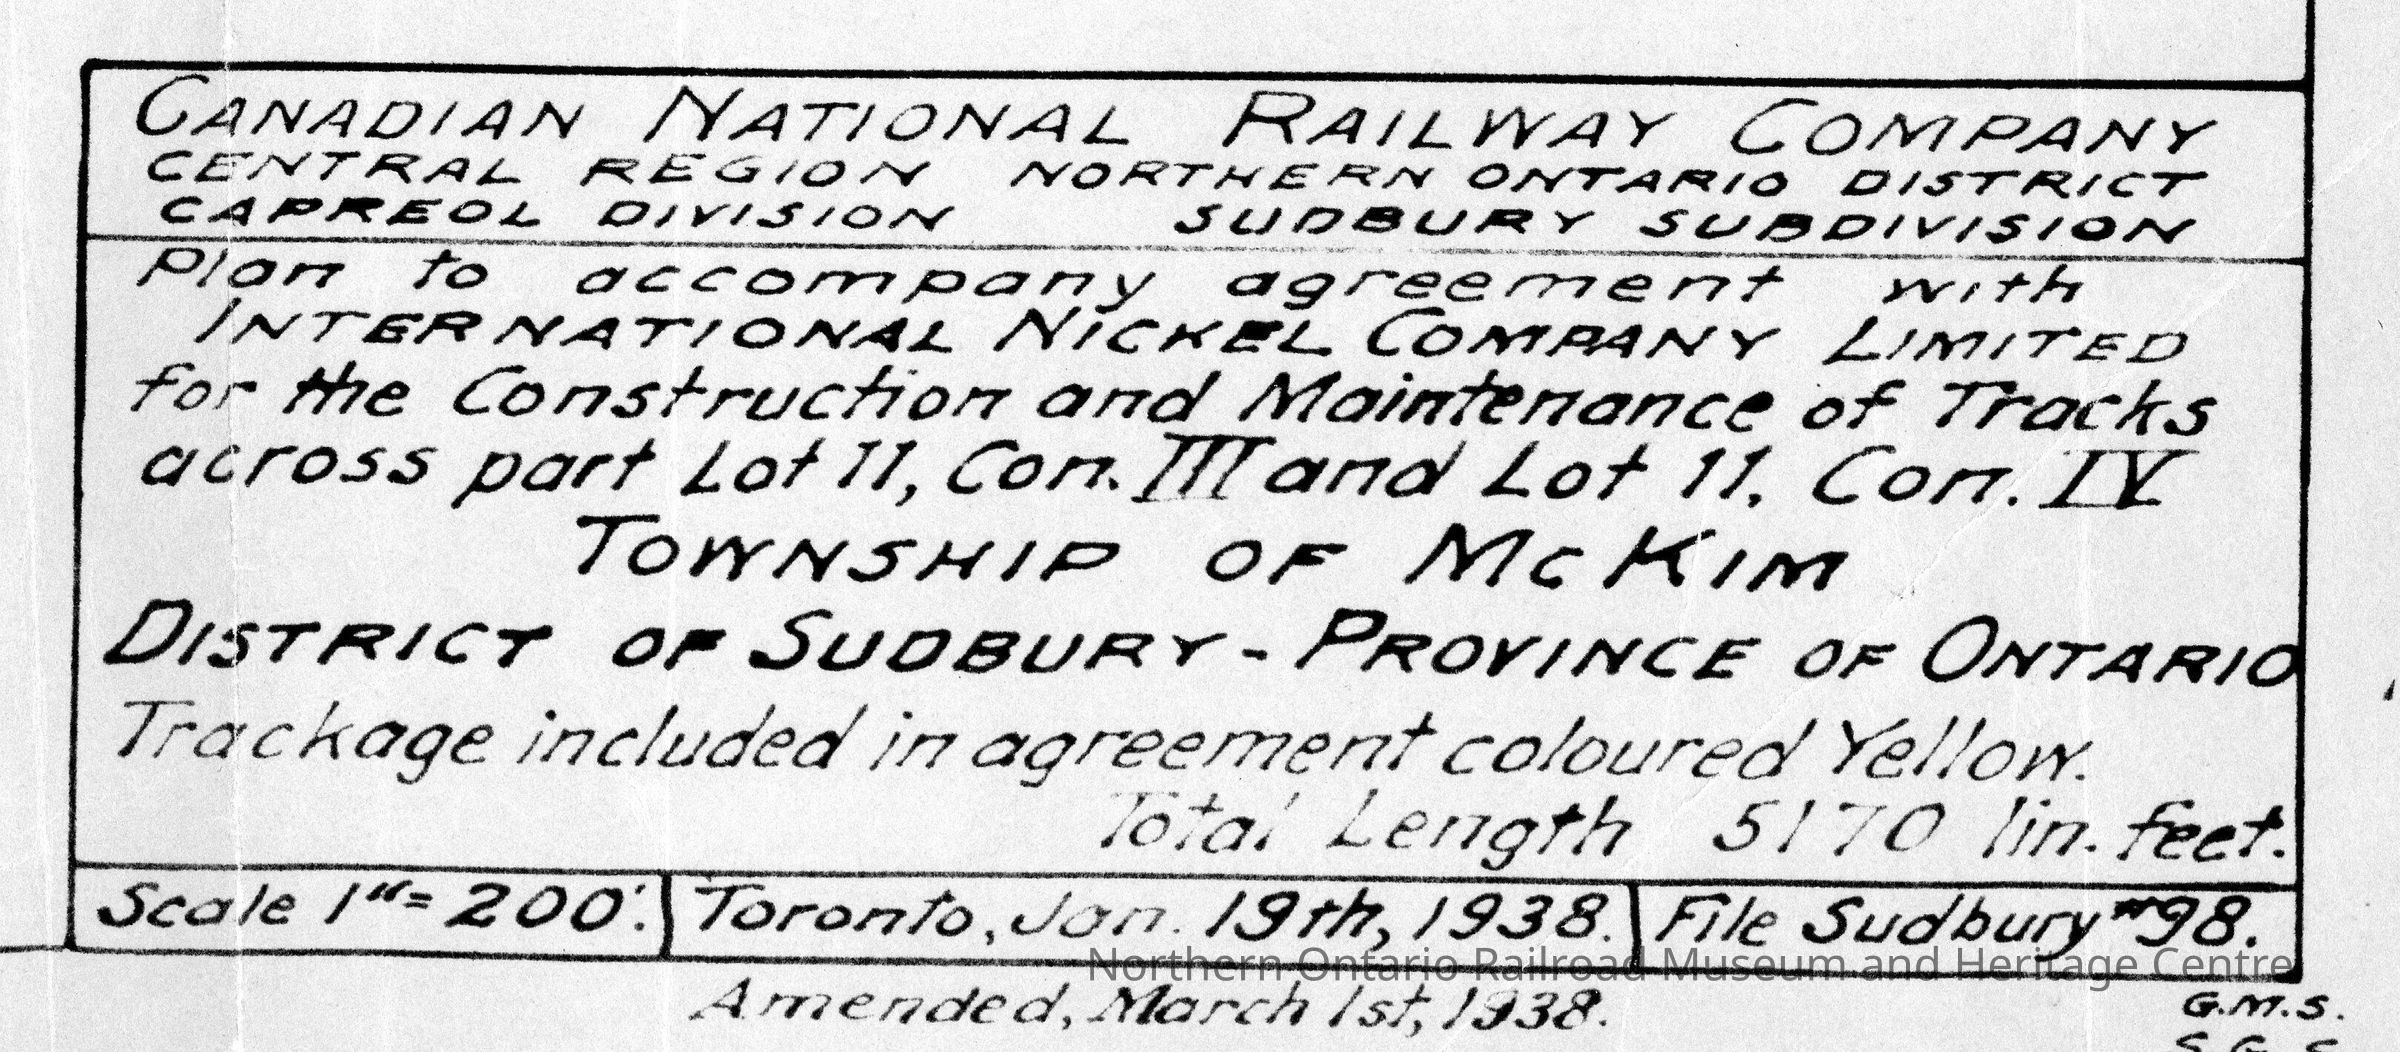 CANADIAN NATIONAL RAILWAY COMPANY
CENTRAL REGION NORTHERN ONTARIO DISTRICT
CAPREOL DIVISION SUDBURY SUBDIVISION
Plan to accompany agreement with
INTERNATIONAL NICKEL COMPANY LIMITED
for the Construction and Maintenance of Tracks
across part Lot 11, Con. III and Lot 11, Con. IV
TOWNSHIP OF McKIM
DISTRICT OF SUDBURY - PROVINCE OF ONTARIO
Trackage included in agreement coloured Yellow.
Total Length 5170 lin. feet.
Scale 1"= 200'. Toronto, Jan. 19th, 1938. File Sudbury #98.
Northern Ontario Railroad Museum and Heritage Centre
Amended, March 1st, 1938.
G.M.S.